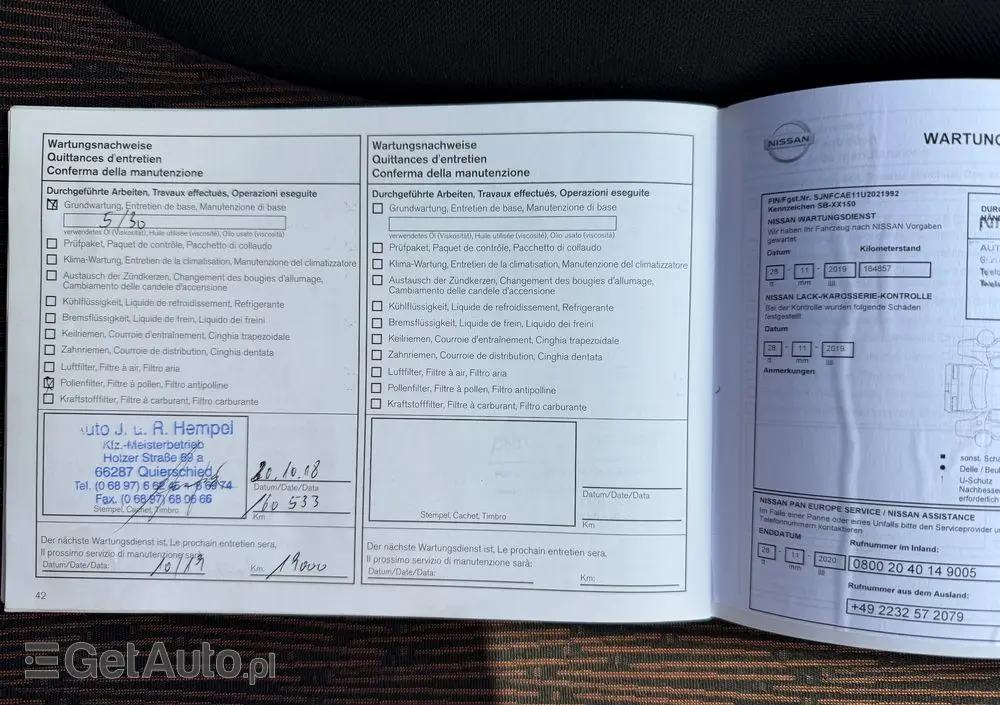 Wartungsnachweise
Quittances d'entretien
Conferma della manutenzione
Durchgeführte Arbeiten, Travaux effectués, Operazioni eseguite
Grundwartung, Entretien de base, Manutenzione di base
5/30
verwendetes Öl (Viskosität), Huile utilisée (viscosité), Olio usato (viscosità)
Prüfpaket, Paquet de contrôle, Pacchetto di collaudo
Klima-Wartung, Entretien de la climatisation, Manutenzione del climatizzatore
Austausch der Zündkerzen, Changement des bougies d'allumage,
Cambiamento delle candele d'accensione
Kühlflüssigkeit, Liquide de refroidissement, Refrigerante
Bremsflüssigkeit, Liquide de frein, Liquido dei freini
Keilriemen, Courroie d'entraînement, Cinghia trapezoidale
Zahnriemen, Courroie de distribution, Cinghia dentata
Luftfilter, Filtre à air, Filtro aria
Pollenfilter, Filtre à pollen, Filtro antipolline
Kraftstofffilter, Filtre à carburant, Filtro carburante
uto J. u. R. Hempel
Kfz.-Meisterbetrieb
Holzer Straße 69 a
66287 Quierschied
Tel. (0 68 97)
Fax. (0 68 97) 68 96 66
Stempel, Cachet, Timbro
20.10.18
Datum/Date/Data
160 533
Km
Der nächste Wartungsdienst ist, Le prochain entretien sera,
Il prossimo servizio di manutenzione sarà:
Datum/Date/Data: 10/19
Km: 19000
42
Wartungsnachweise
Quittances d'entretien
Conferma della manutenzione
Durchgeführte Arbeiten, Travaux effectués, Operazioni eseguite
Grundwartung, Entretien de base, Manutenzione di base
verwendetes Öl (Viskosität), Huile utilisée (viscosité), Olio usato (viscosità)
Prüfpaket, Paquet de contrôle, Pacchetto di collaudo
Klima-Wartung, Entretien de la climatisation, Manutenzione del climatizzatore
Austausch der Zündkerzen, Changement des bougies d'allumage,
Cambiamento delle candele d'accensione
Kühlflüssigkeit, Liquide de refroidissement, Refrigerante
Bremsflüssigkeit, Liquide de frein, Liquido dei freini
Keilriemen, Courroie d'entraînement, Cinghia trapezoidale
Zahnriemen, Courroie de distribution, Cinghia dentata
Luftfilter, Filtre à air, Filtro aria
Pollenfilter, Filtre à pollen, Filtro antipolline
Kraftstofffilter, Filtre à carburant, Filtro carburante
Stempel, Cachet, Timbro
Datum/Date/Data
Km
Der nächste Wartungsdienst ist, Le prochain entretien sera,
Il prossimo servizio di manutenzione sarà:
Datum/Date/Data:
Km:
NISSAN
WARTUNG
FIN/Fgst.Nr. SJNFCAE11U2021992
Kennzeichen SB-XX150
NISSAN WARTUNGSDIENST
Wir haben Ihr Fahrzeug nach NISSAN Vorgaben
gewartet
Datum
Kilometerstand
28 - 11 - 2019
164857
tt mm jjjj
NISSAN LACK-/KAROSSERIE-KONTROLLE
Bei der Kontrolle wurden folgende Schäden
festgestellt
Datum
28 - 11 - 2019
tt mm jjjj
Anmerkungen
DURC
HÄND
AUT
Telefo
Telefa
sonst. Scha
Delle / Beul
U-Schutz
Nachbesse
erforderlich
NISSAN PAN EUROPE SERVICE / NISSAN ASSISTANCE
Im Falle einer Panne oder eines Unfalls bitte den Serviceprovider un
Telefonnummern kontaktieren
ENDDATUM
28 - 11 - 2020
tt mm jjjj
Rufnummer im Inland:
0800 20 40 14 9005
Rufnummer aus dem Ausland:
+49 2232 57 2079
GetAuto.pl